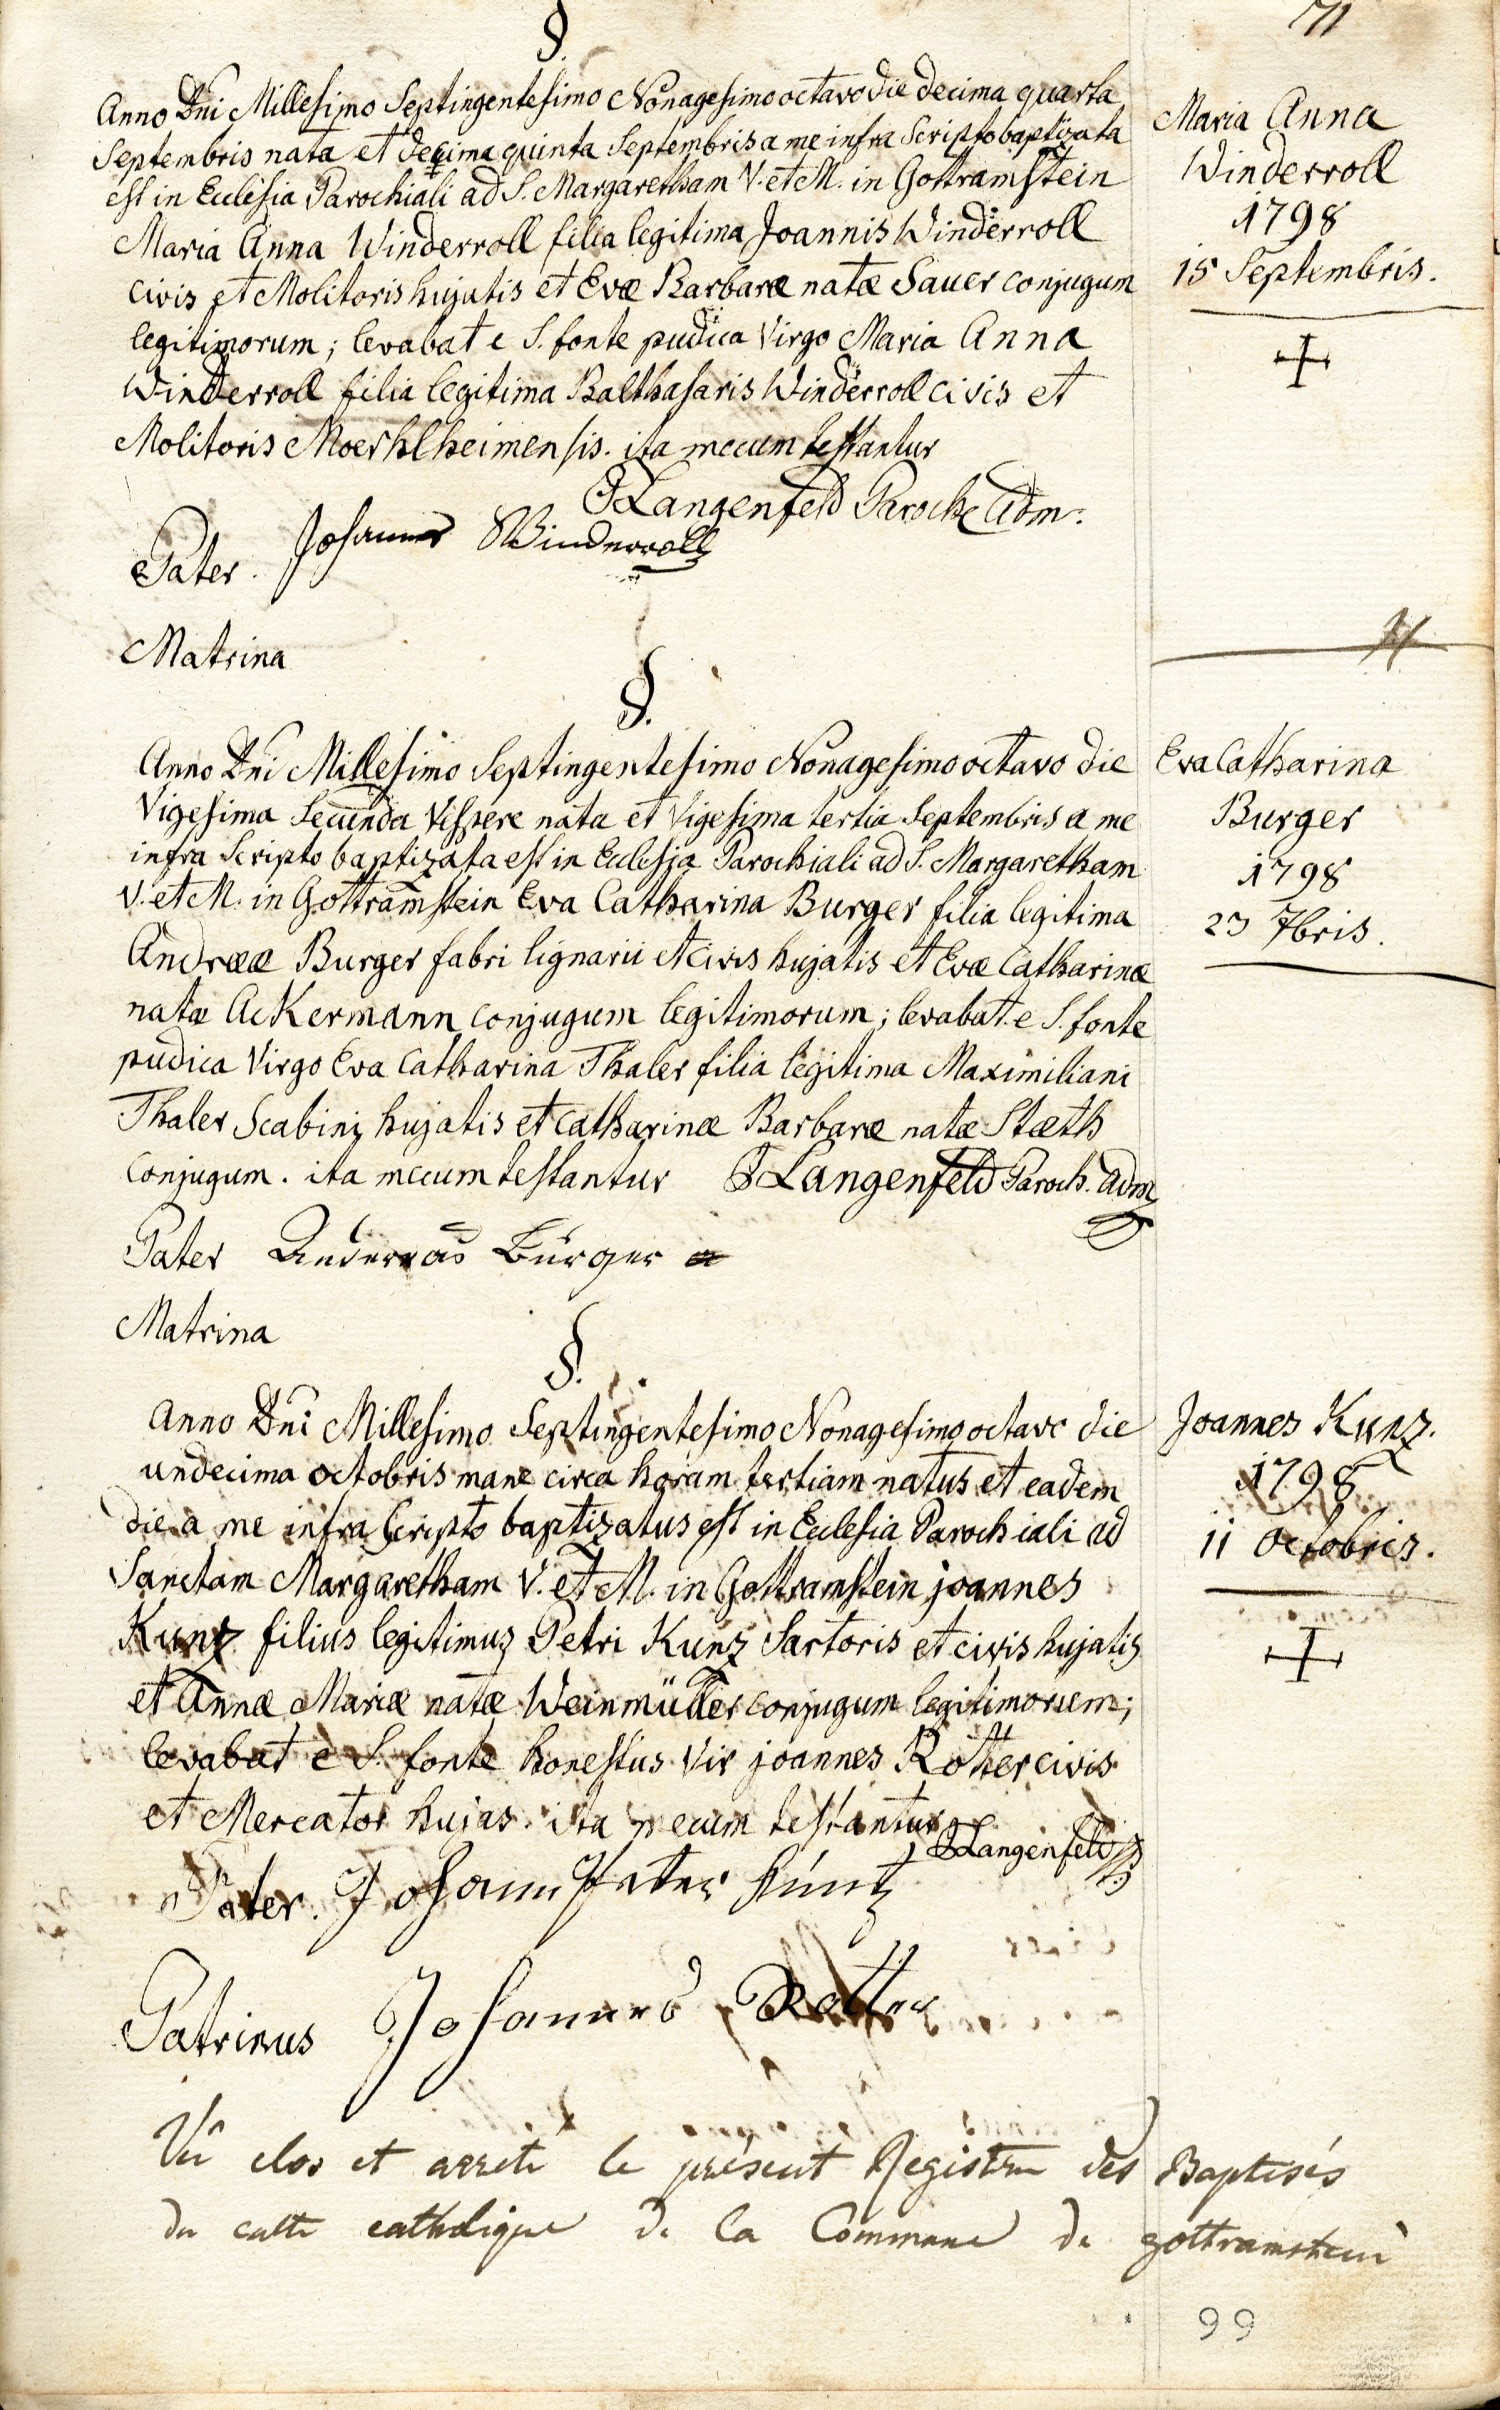 71
§.
Anno Dni Millesimo Septingentesimo Nonagesimo octavo die decima quarta
Septembris nata et decima quinta Septembris a me infra Scripto baptizata
est in Ecclesia Parochiali ad S. Margaretham V. et M. in Gottramstein
Maria Anna Winderroll filia legitima Joannis Winderroll
civis et Molitoris hujatis et Evæ Barbaræ natæ Sauer conjugum
legitimorum; levabat e S. fonte pudica Virgo Maria Anna
Winderroll filia legitima Balthasaris Winderroll civis et
Molitoris Moerhlheimensis. ita mecum testantur
Langenfeld Paroche Adm:
Pater. Johannes Winderroll
Matrina
Maria Anna
Winderroll
1798
15 Septembris.
§.
Anno Dni Millesimo Septingentesimo Nonagesimo octavo die
Vigesima Secunda Vespere nata et Vigesima tertia Septembris a me
infra Scripto baptizata est in Ecclesia Parochiali ad S. Margaretham
V. et M. in Gottramstein Eva Catharina Burger filia legitima
Andreæ Burger fabri lignarii et civis hujatis et Evæ Catharinæ
natæ Ackermann conjugum legitimorum; levabat e S. fonte
pudica Virgo Eva Catharina Thaler filia legitima Maximiliani
Thaler Scabini hujatis et Catharinæ Barbaræ natæ Stæth
conjugum. ita mecum testantur Langenfeld Paroch. adm
Pater Andereas Bürger
Matrina
Eva Catharina
Burger
1798
23 7bris.
§.
Anno Dni Millesimo Septingentesimo Nonagesimo octavo die
undecima octobris mane circa horam tertiam natus et eadem
die a me infra Scripto baptizatus est in Ecclesia Parochiali ad
Sanctam Margaretham V. et M. in Gottramstein joannes
Kunz filius legitimus Petri Kunz Sartoris et civis hujatis
et Annæ Mariæ natæ Weinmüller conjugum legitimorum;
levabat e S. fonte honestus Vir joannes Rotter civis
et Mercator hujas. ita mecum testantur
Langenfeld
Pater. Johann Peter Kuntz
Patrinus Johannes Rotter
Joannes Kunz.
1798
11 octobris.
Vû clos et arreté le présent Registre des Baptisés
du culte catholique de la Commune de gottramstein
99